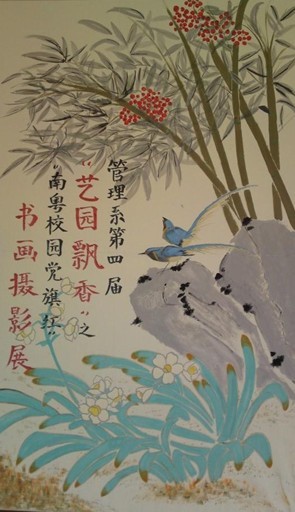 管理系第四届
"艺园飘香"之
"南粤校园党旗红"
书画摄影展